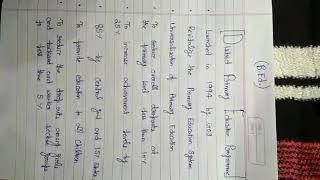 (B.Ed)
District Primary Education Programme
Launched in 1994 by GOI
Revitalize the Primary Education System
Universalization of Primary Education
To reduce overall dropouts at
the primary level less than 10%
To increase achievement levels by
25%
85% by Central govt and 15% state
To provide education to all children
To reduce the dropouts among girls
and weaker social groups
to less than 5%